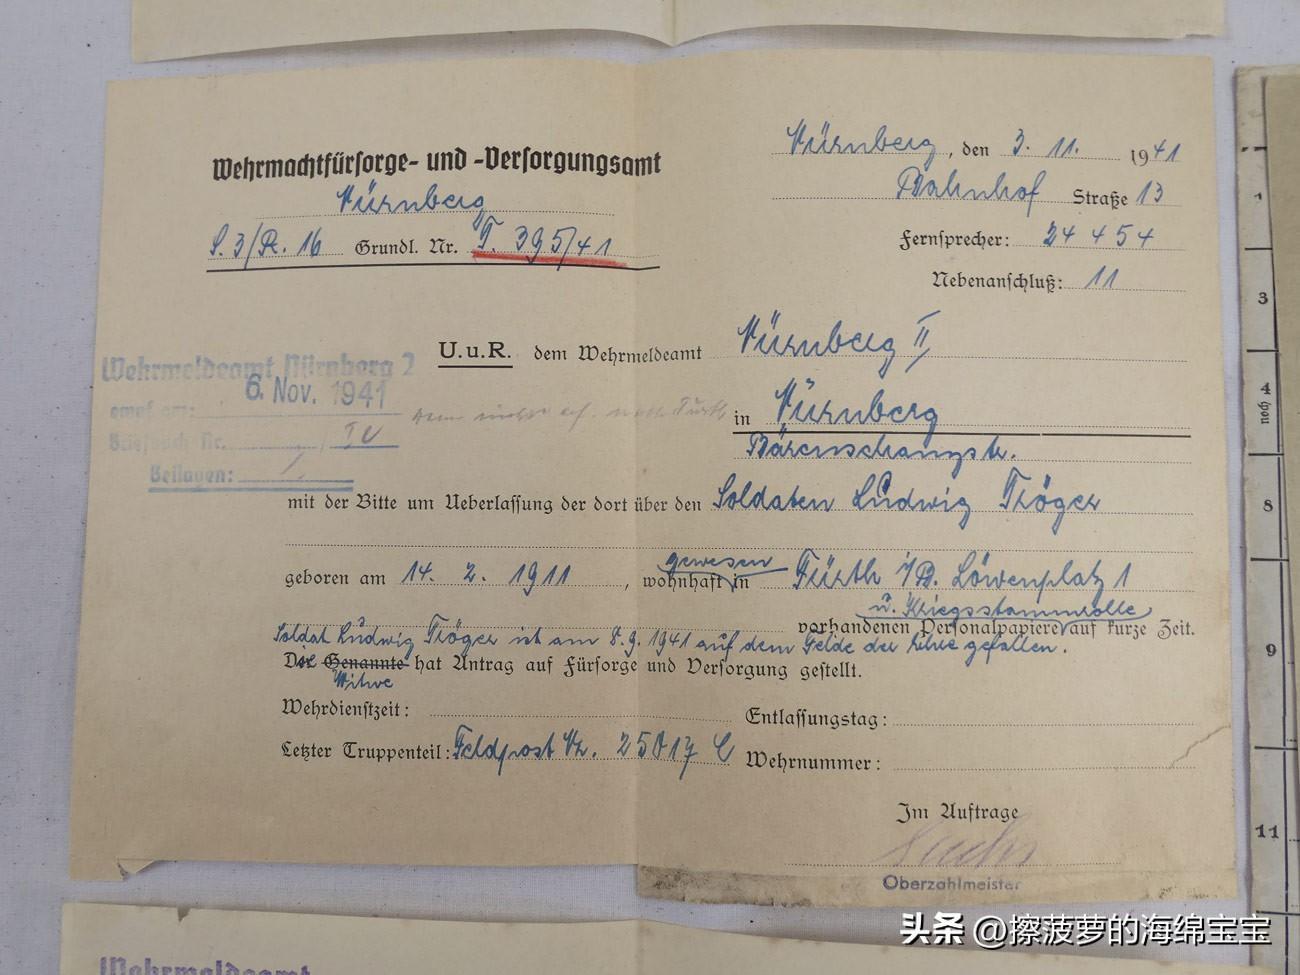 Wehrmachtfürsorge- und -Versorgungsamt
Nürnberg, den 3. 11. 1941
Nürnberg
Bahnhof Straße 13
S. 3/R. 16 Grundl. Nr. T. 395/41
Fernsprecher: 24 4 54
Nebenanschluß: 11
Wehrmeldeamt Nürnberg 2
6. Nov. 1941
Briefbuch Nr.
Beilagen:
U. u. R. dem Wehrmeldeamt Nürnberg II
in Nürnberg
Bärenschanzstr.
mit der Bitte um Ueberlassung der dort über den Soldaten Ludwig Tröger
geboren am 14. 2. 1911, wohnhaft gewesen in Fürth i/B. Löwenplatz 1
vorhandenen Personalpapiere u. Kriegsstammrolle auf kurze Zeit.
Soldat Ludwig Tröger ist am 8.9.1941 auf dem Felde der Ehre gefallen.
Die Genannte Witwe hat Antrag auf Fürsorge und Versorgung gestellt.
Wehrdienstzeit: Entlassungstag:
Letzter Truppenteil: Feldpost Nr. 25017 C Wehrnummer:
Im Auftrage
Oberzahlmeister
Wehrmeldeamt
3
4
noch
8
9
11
头条 @擦菠萝的海绵宝宝